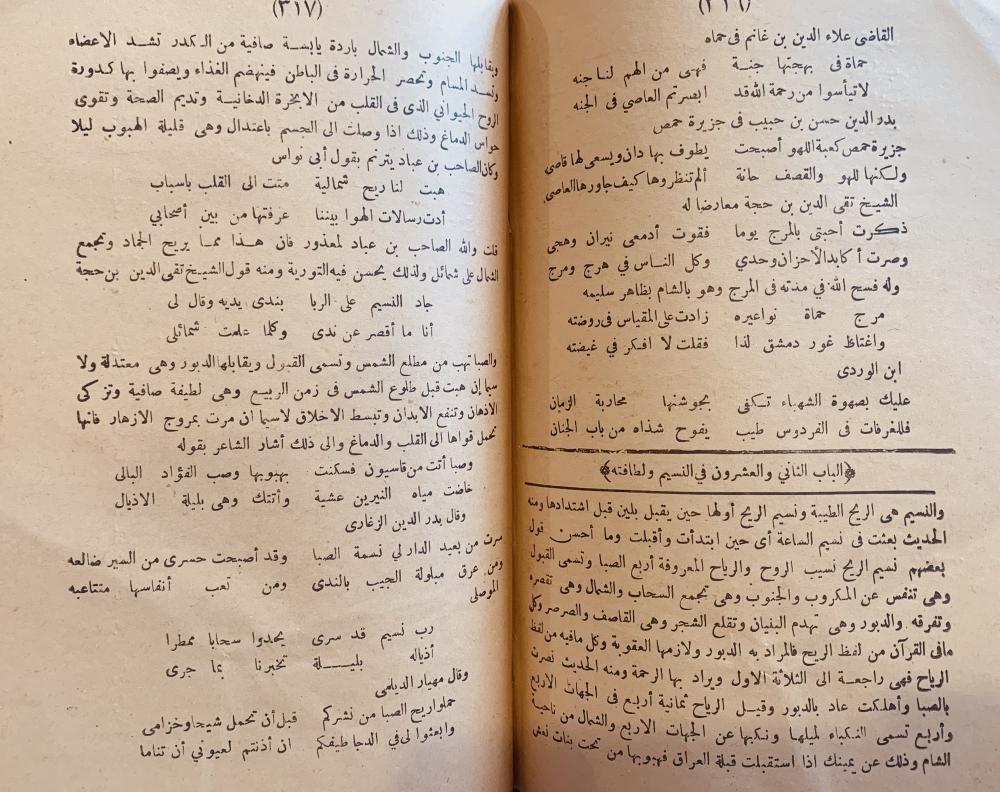 (٣١٦)
القاضى علاء الدين بن غانم فى حماه
حماة فى بهجتها جنـة فهى من الهم لنا جنه
لا تيأسوا من رحمة الله قد ابصرتم العاصى فى الجنه
بدر الدين حسن بن حبيب فى جزيرة حمص
جزيرة حمص كعبة اللهو أصبحت يطوف بها دان ويسعى لها قاصى
ولكنها للهو والقصف حانة ألم تنظروها كيف جاورها العاصى
الشيخ تقى الدين بن حجة معارضا له
ذكرت أحبتى بالمرج يوما فقوت أدمعى نيران وهجى
وصرت أكابد الأحزان وحدي وكل الناس في هرج ومرج
وله فسح الله في مدته فى المرج وهو بالشام بظاهر سليمه
مرج حماة نواعيره زادت على المقياس فى روضته
واغتاظ غور دمشق لذا فقلت لا افكر في غيضته
ابن الوردى
عليك بصهوة الشهباء تكفى بجوشنها محاربة الزمان
فللغرفات فى الفردوس طيب يفوح شذاه من باب الجنان
﴿الباب الثاني والعشرون في النسيم ولطافته﴾
والنسيم هى الريح الطيبة ونسيم الريح أولها حين يقبل بلين قبل اشتدادها ومنه
الحديث بعثت فى نسيم الساعة أى حين ابتدأت وأقبلت وما أحسن قول
بعضهم نسيم الريح نسيب الروح والرياح المعروفة أربع الصبا وتسمى القبول
وهى تنفس عن المكروب والجنوب وهى تجمع السحاب والشمال وهى تقصره
وتفرقه والدبور وهى تهدم البنيان وتقلع الشجر وهى القاصف والصرصر وكل
مافى القرآن من لفظ الريح فالمراد به الدبور ولازمها العقوبة وكل مافيه من لفظ
الرياح فهى راجعة الى الثلاثة الاول ويراد بها الرحمة ومنه الحديث نصرت
بالصبا وأهلكت عاد بالدبور وقيل الرياح ثمانية أربع فى الجهات الاربع
وأربع تسمى النكباء لميلها ونكبها عن الجهات الاربع والشمال من ناحية
الشام وذلك عن يمينك اذا استقبلت قبلة العراق فهبوبها من تحت بنات نعش
(٣١٧)
ويقابلها الجنوب والشمال باردة يابسة صافية من الكدر تشد الاعضاء
وتسد المسام وتحصر الحرارة فى الباطن فينهضم الغذاء ويصفوا بها كدورة
الروح الحيوانى الذى فى القلب من الابخرة الدخانية وتديم الصحة وتقوى
حواس الدماغ وذلك اذا وصلت الى الجسم باعتدال وهى قليلة الهبوب ليلا
وكان الصاحب بن عباد يترنم بقول أبى نواس
هبت لنا ريح شمالية متت الى القلب باسباب
أدت رسالات الهوا بيننا عرفتها من بين أصحابي
قلت والله الصاحب بن عباد لمعذور فان هذا مما يريح الجماد وتجمع
الشمال على شمائل ولذلك يحسن فيه التورية ومنه قول الشيخ تقى الدين بن حجة
جاد النسيم على الربا بندى يديه وقال لى
أنا ما أقصر عن ندى وكلما علمت شمائلى
والصبا تهب من مطلع الشمس وتسمى القبول ويقابلها الدبور وهى معتدلة ولا
سيما إن هبت قبل طلوع الشمس فى زمن الربيع وهى لطيفة صافية وتزكى
الاذهان وتنفع الابدان وتبسط الاخلاق لاسيما ان مرت بمروج الازهار فانها
تحمل قواها الى القلب والدماغ والى ذلك أشار الشاعر بقوله
وصبا أتت من قاسيون فسكنت بهبوبها وصب الفؤاد البالى
خاضت مياه النيرين عشية وأتتك وهى بليلة الاذيال
وقال بدر الدين الزغارى
سرت من بعيد الدار لي نسمة الصبا وقد أصبحت حسرى من السير ضالعه
ومن عرق مبلولة الجيب بالندى ومن تعب أنفاسها متتابعه
الموصلى
رب نسيم قد سرى يحدوا سحابا ممطرا
أذياله بليلة تخبرنا بما جرى
وقال مهيار الديلمى
حملوا ريح الصبا من نشركم قبل أن تحمل شيحا وخزامى
وابعثوا لى في الدجا طيفكم ان أذنتم لعيونى أن تناما